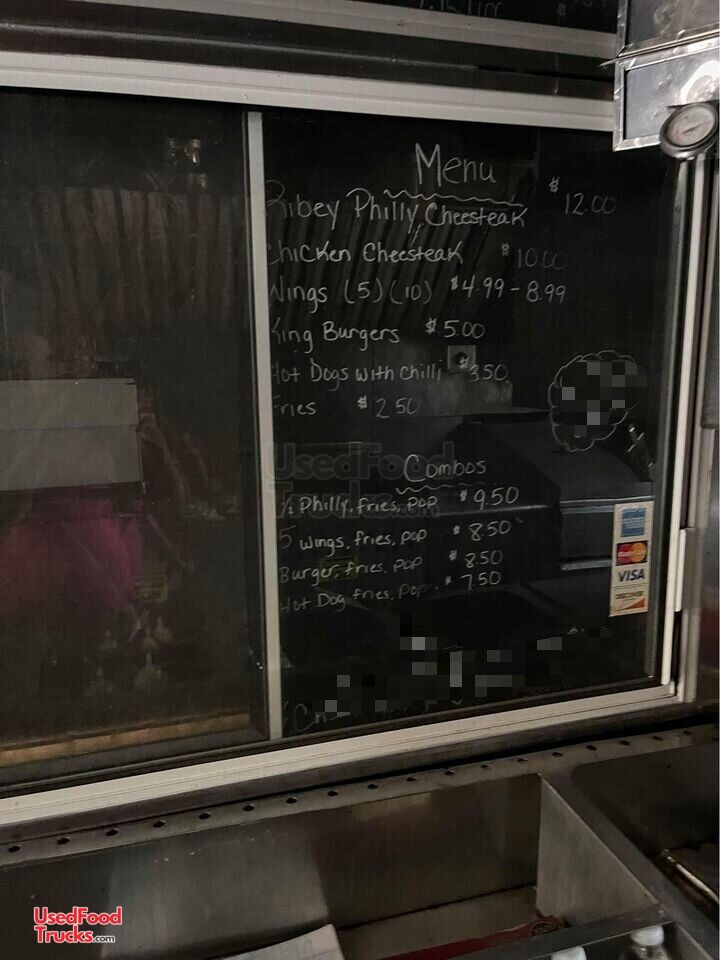 Menu
Ribey Philly Cheesteak $12.00
Chicken Cheesteak $10.00
Wings (5) (10) $4.99 - 8.99
King Burgers $5.00
Hot Dogs with Chilli $3.50
Fries $2.50
UsedFood
Combos
½ Philly, fries, pop $9.50
5 wings, fries, pop $8.50
Burger, fries, pop $8.50
Hot Dog fries, pop - $7.50
MasterCard
VISA
DISCOVER
UsedFood
Trucks.com